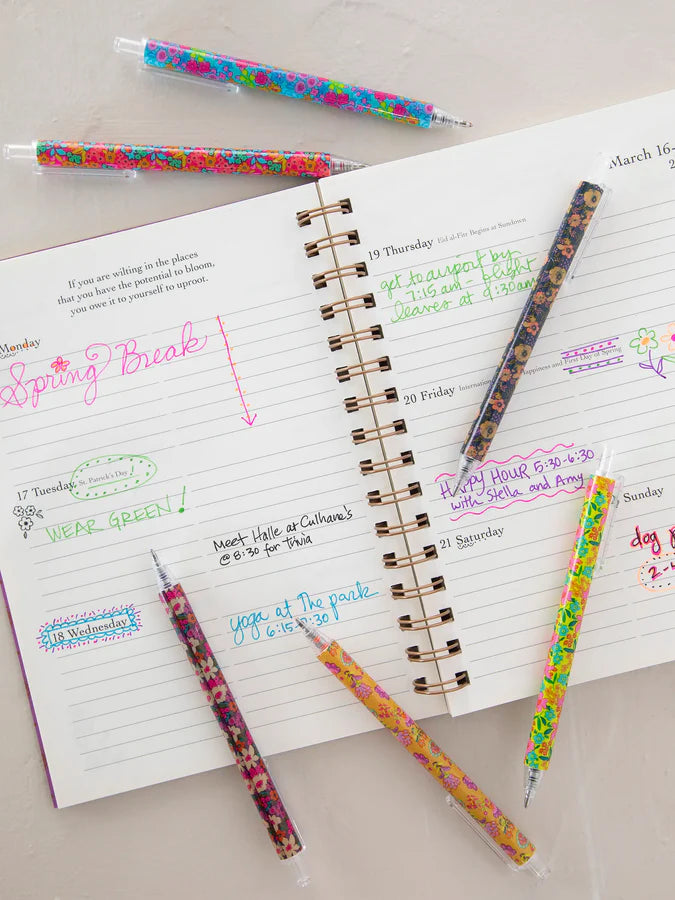 If you are wilting in the places
that you have the potential to bloom,
you owe it to yourself to uproot.
Monday
Spring Break
17 Tuesday St. Patrick's Day !
WEAR GREEN!
Meet Halle at Culhane's
@ 8:30 for trivia
18 Wednesday
yoga at The park
6:15
:30
March 16-
2
19 Thursday Eid al-Fitr Begins at Sundown
get to airport by
7:15 am - flight
leaves at 9:30am
20 Friday
Happiness and First Day of Spring
HAPPY HOUR 5:30-6:30
with Stella and Amy
21 Saturday
Sunday
dog
2-